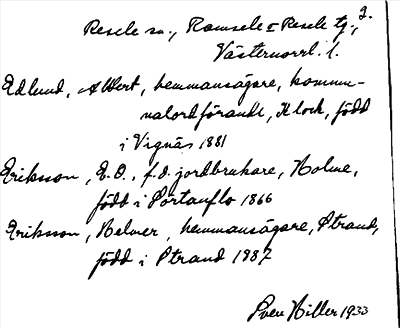 2.
Resele sn., Ramsele o Resele tg,
Västernorrl. l.
Edlund, Albert, hemmansägare, kommu-
nalordförande, Klock, född
i Vignäs 1881
Eriksson, E.O., f.d. jordbrukare, Holme,
född i Sörtanflo 1866
Eriksson, Helmer, hemmansägare, Strand,
född i Strand 1887
Sven Hiller 1933